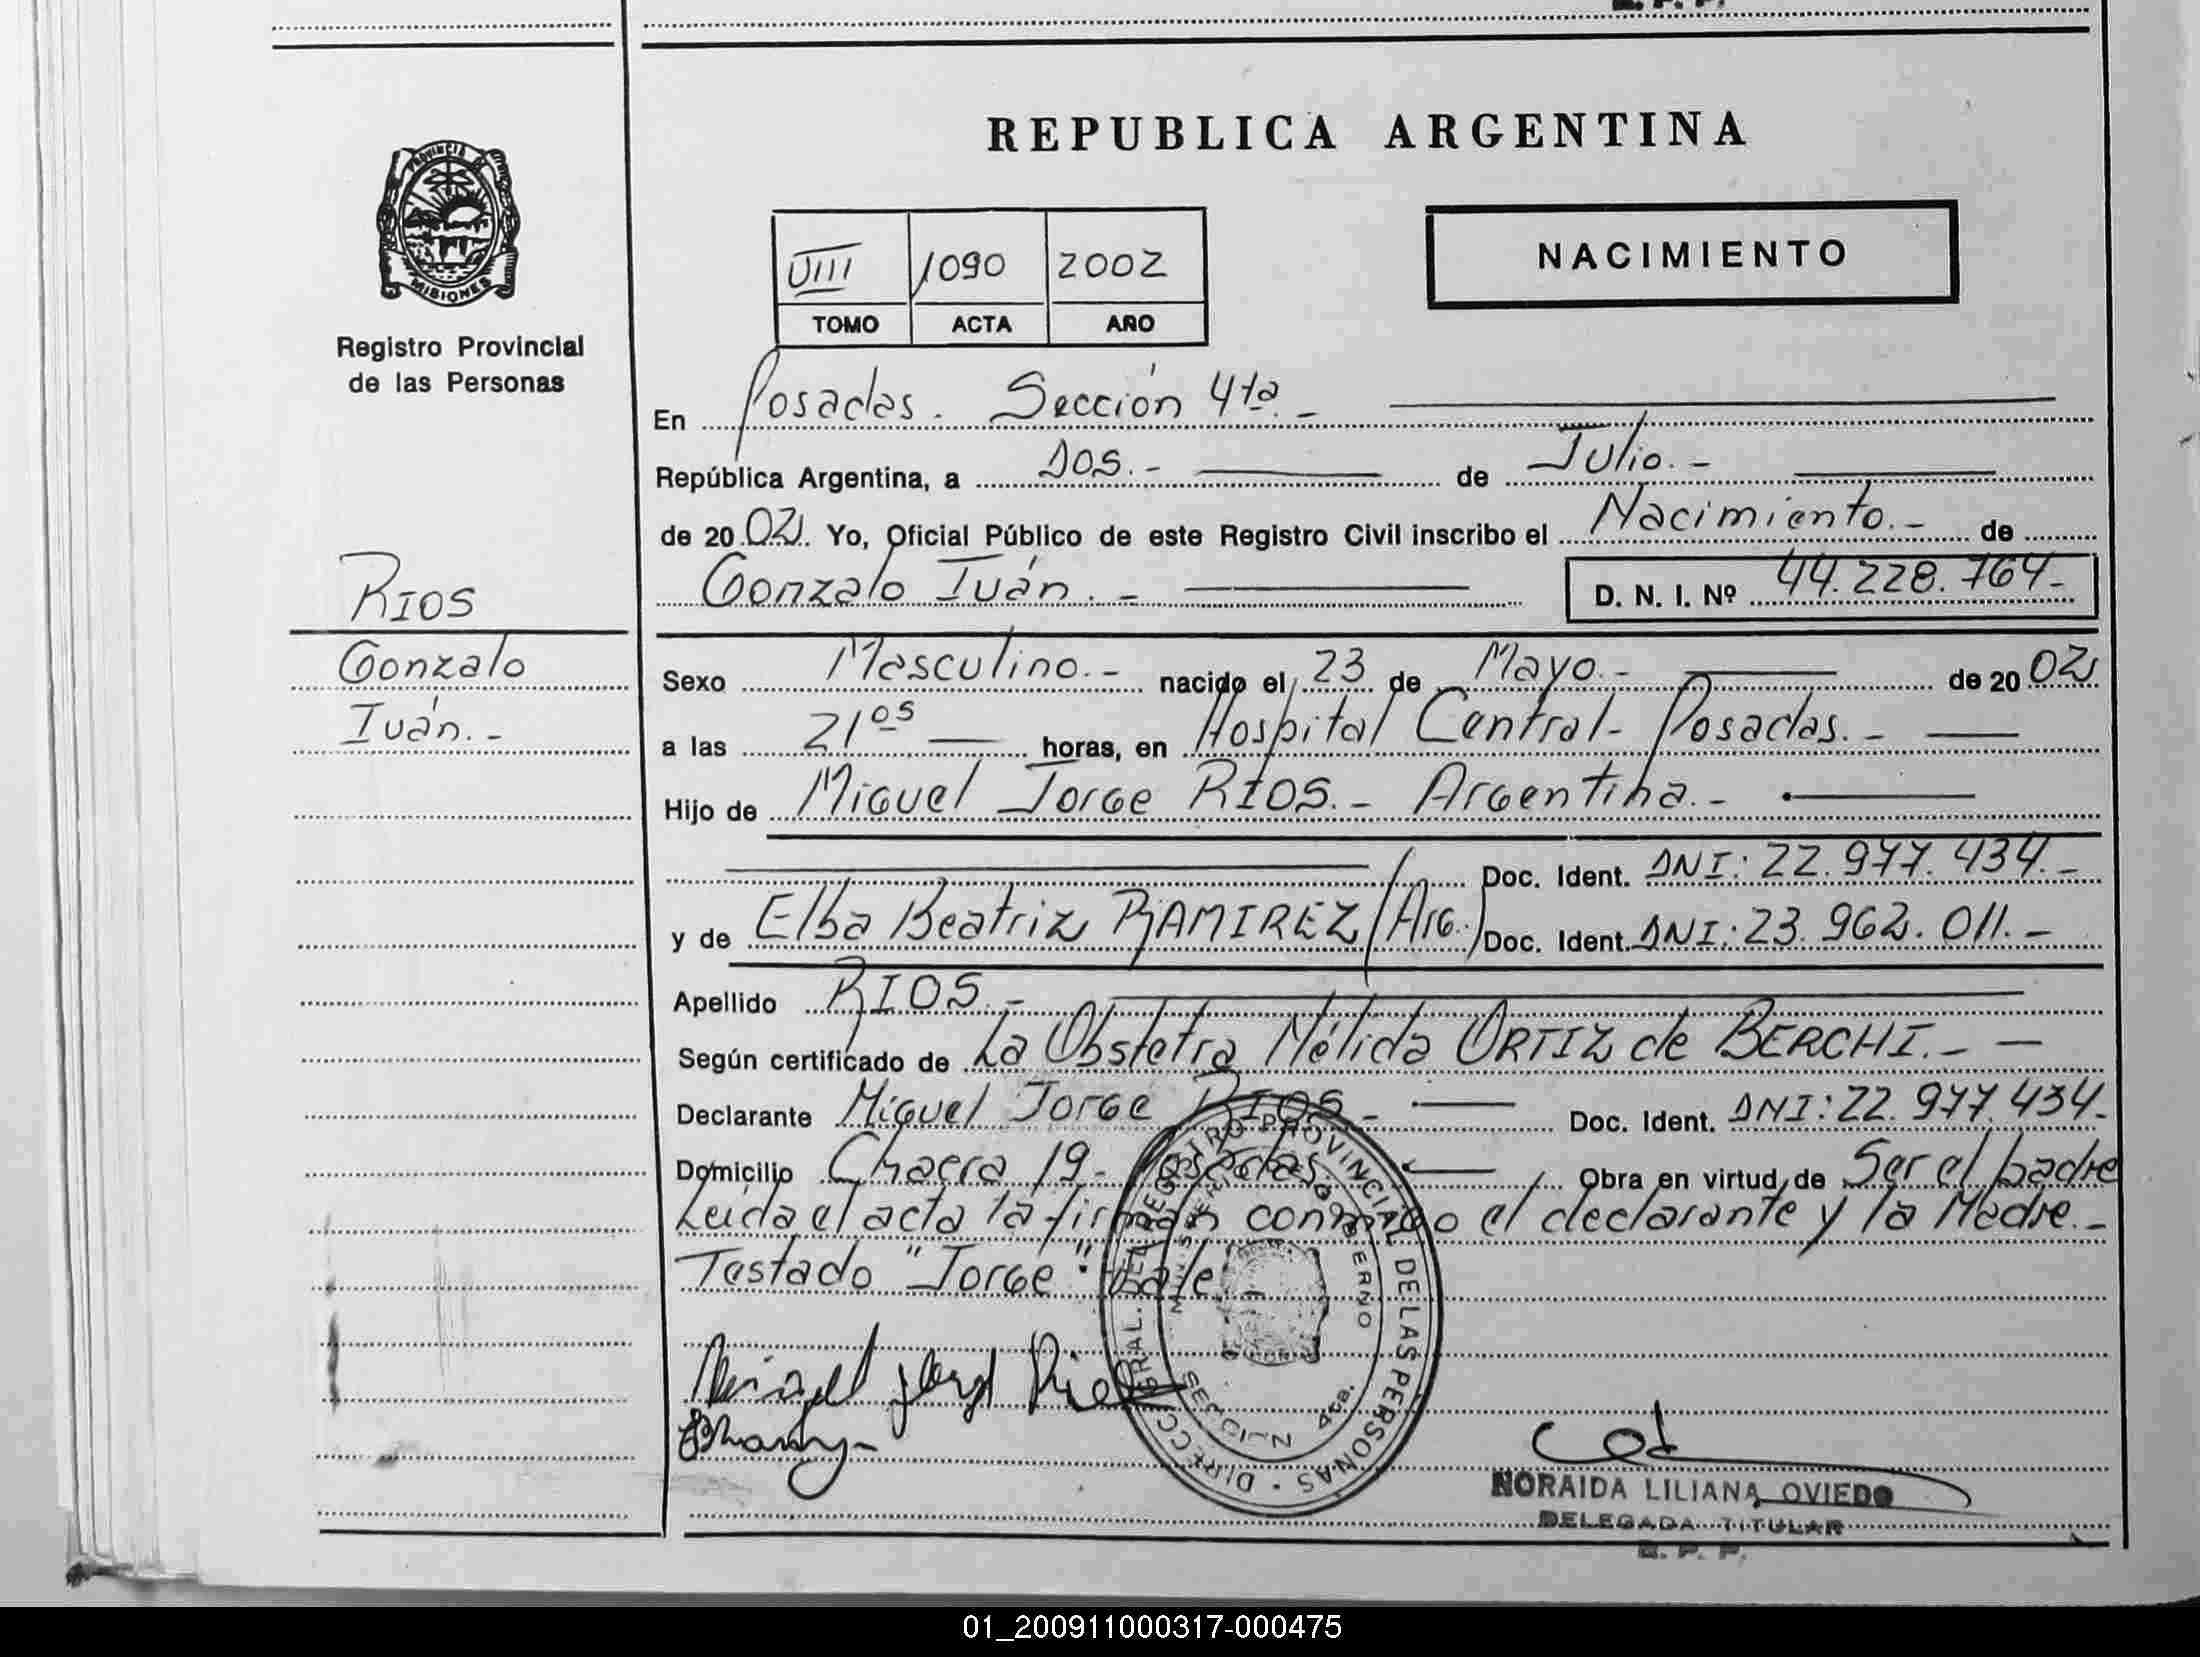 REPUBLICA ARGENTINA
PROVINCIA DE
MISIONES
Registro Provincial
de las Personas
NACIMIENTO
VIII 1090 2002
TOMO ACTA AÑO
En Posadas. Sección 4ta.-
República Argentina, a Dos.- de Julio.-
de 2002. Yo, Oficial Público de este Registro Civil inscribo el Nacimiento.- de
Gonzalo Iván.- D. N. I. Nº 44.228.764-
RIOS
Gonzalo
Iván.-
Sexo Masculino.- nacido el 23 de Mayo.- de 2002
a las 21 05 horas, en Hospital Central- Posadas.-
Hijo de Miguel Jorge RIOS.- Argentina.-
Doc. Ident. DNI: 22.977.434.-
y de Elba Beatriz RAMIREZ (Arg.) Doc. Ident. DNI: 23.962.011.-
Apellido RIOS.-
Según certificado de La Obstetra Nélida ORTIZ de BERCHI.-
Declarante Miguel Jorge RIOS- Doc. Ident. DNI: 22.977.434-
Domicilio Chacra 19- Posadas Obra en virtud de Ser el padre
Leida el acta la firman conmigo el declarante y la Madre.-
Testado "Jorge" Vale
Miguel Jorge Rios
DIRECC. GRAL. DEL REGISTRO PROVINCIAL DE LAS PERSONAS
MINISTERIO DE GOBIERNO
SECCION 4ta.
NORAIDA LILIANA OVIEDO
DELEGADA TITULAR
R. P. P.
01_200911000317-000475